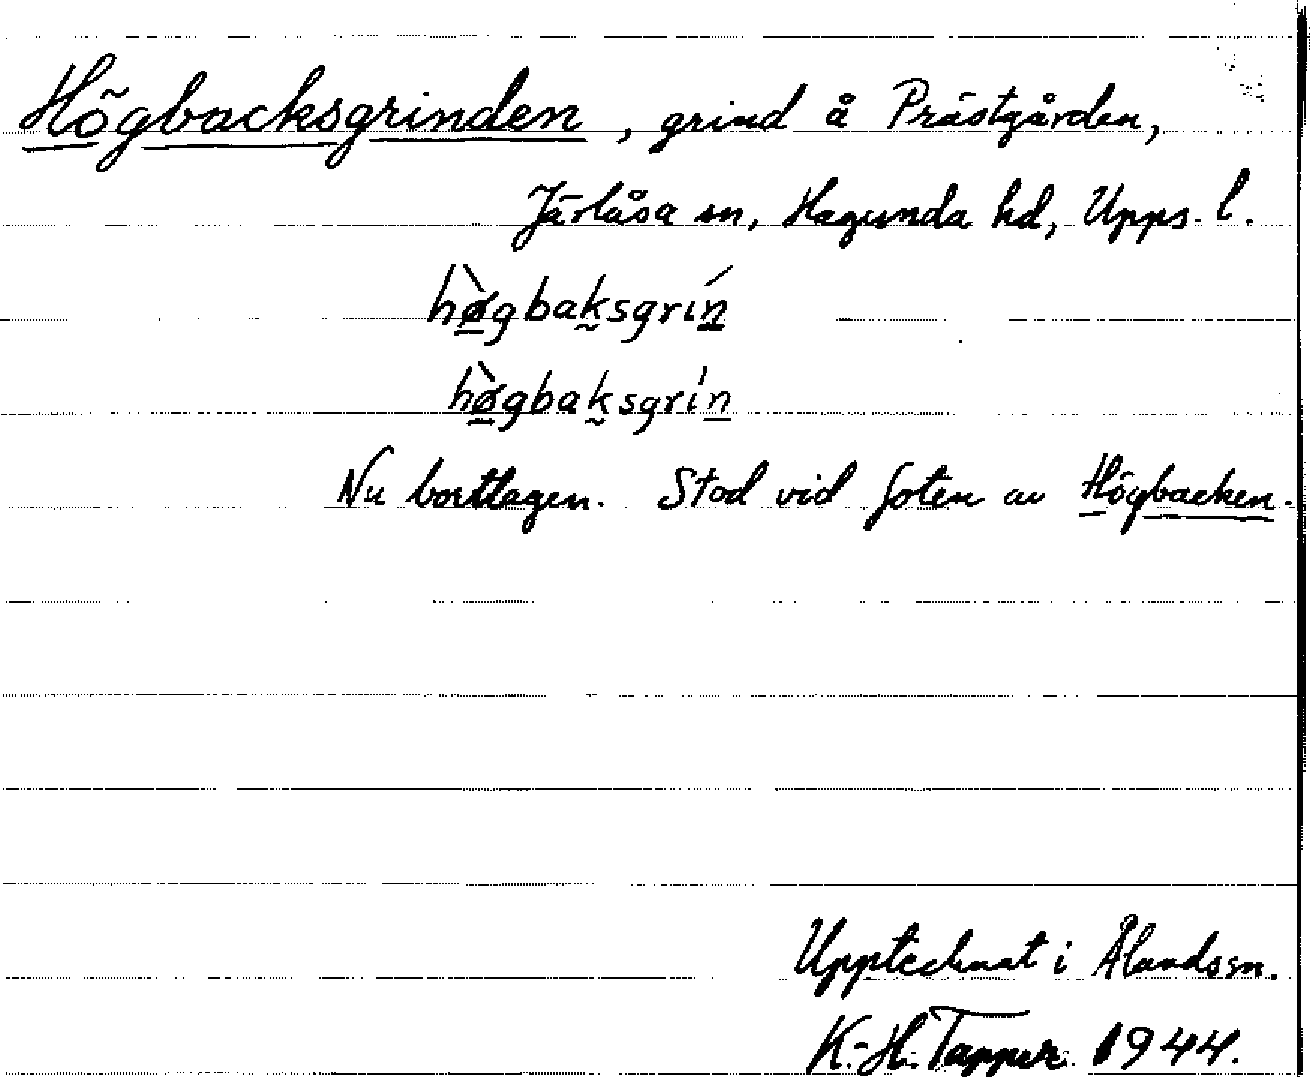 Högbacksgrinden, grind å Prästgården,
Järlåsa sn, Hagunda hd, Upps. l.
hø̀gbaksgrín
hø̀gbaksgrín
Nu borttagen. Stod vid foten av Högbacken.
Upptecknat i Ålands sn.
K.-H. Tapper 1944.